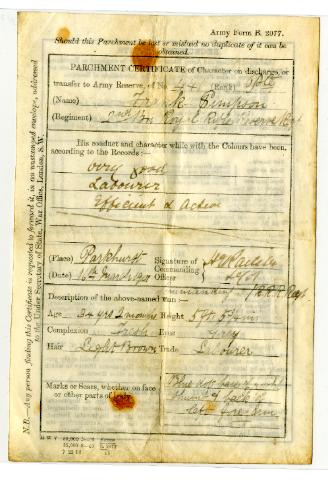 Army Form B. 2077.
Should this Parchment be lost or mislaid no duplicate of it can be
obtained.
PARCHMENT CERTIFICATE of Character on discharge, or
transfer to Army Reserve, of No. 44 (Rank) Pte
(Name) Frank Simpson
(Regiment) 2nd Bn Royal Rifle Reserve Regt
His conduct and character while with the Colours have been,
according to the Records:—
Very good
Labourer
Efficient & Active
(Place) Parkhurst Signature of
Commanding
(Date) March
Commanding R.R.R. Regt
Description of the above-named man
Age 34 yrs 2 months Height 5 ft
Complexion Fresh Eyes Grey
Hair Light Brown Trade Labourer
Marks or Scars, whether on face
or other parts of body
Blue dot base of
thumb & back of
left forearm
N.B.—Any person finding this Certificate is requested to forward it, in an unstamped envelope, addressed
to the Under Secretary of State, War Office, London, S.W.